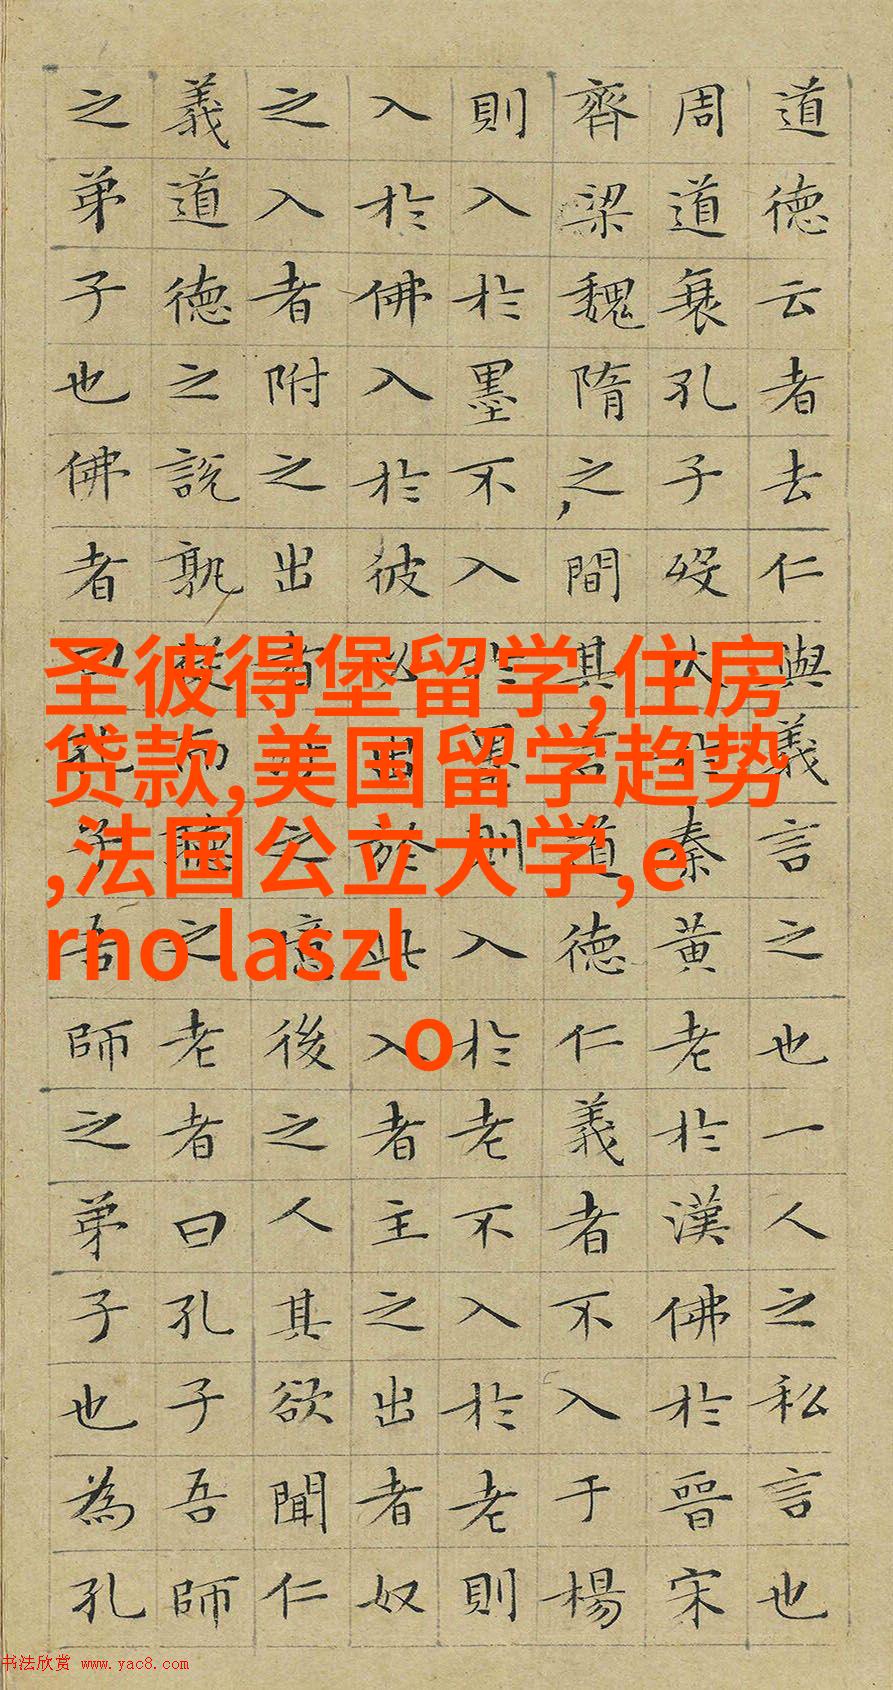 道德云者去仁與義言之也一人之私言也
周道衰孔子歿火於秦黃老於漢佛於晉宋
齊梁魏隋之間其言道德仁義者不入于楊
則入於墨不入於墨則入於老不入於老則
入於佛入於彼必出於此入者主之出者奴
之入者附之出者之噫後之人其欲聞仁
義道德之說孰從而聽之老者曰孔子吾師
之弟子也佛者曰孔子吾師之弟子也為孔
圣彼得堡留学,住房
贷款,美国留学趋势
,法国公立大学,e
rno laszl
o
书法欣赏 www.yac8.com